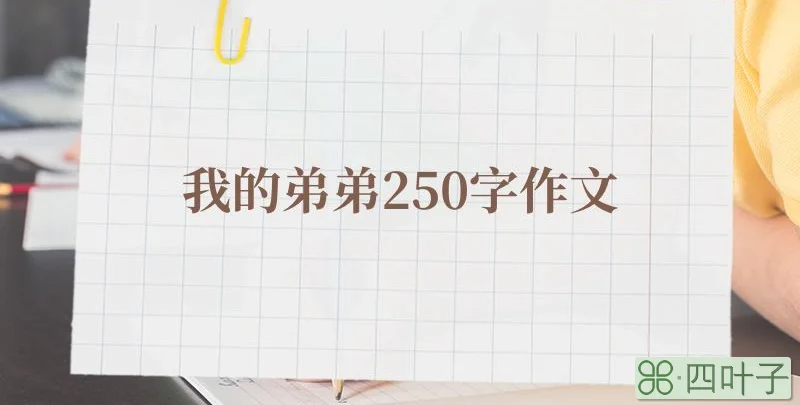 我的弟弟250字作文
四叶子